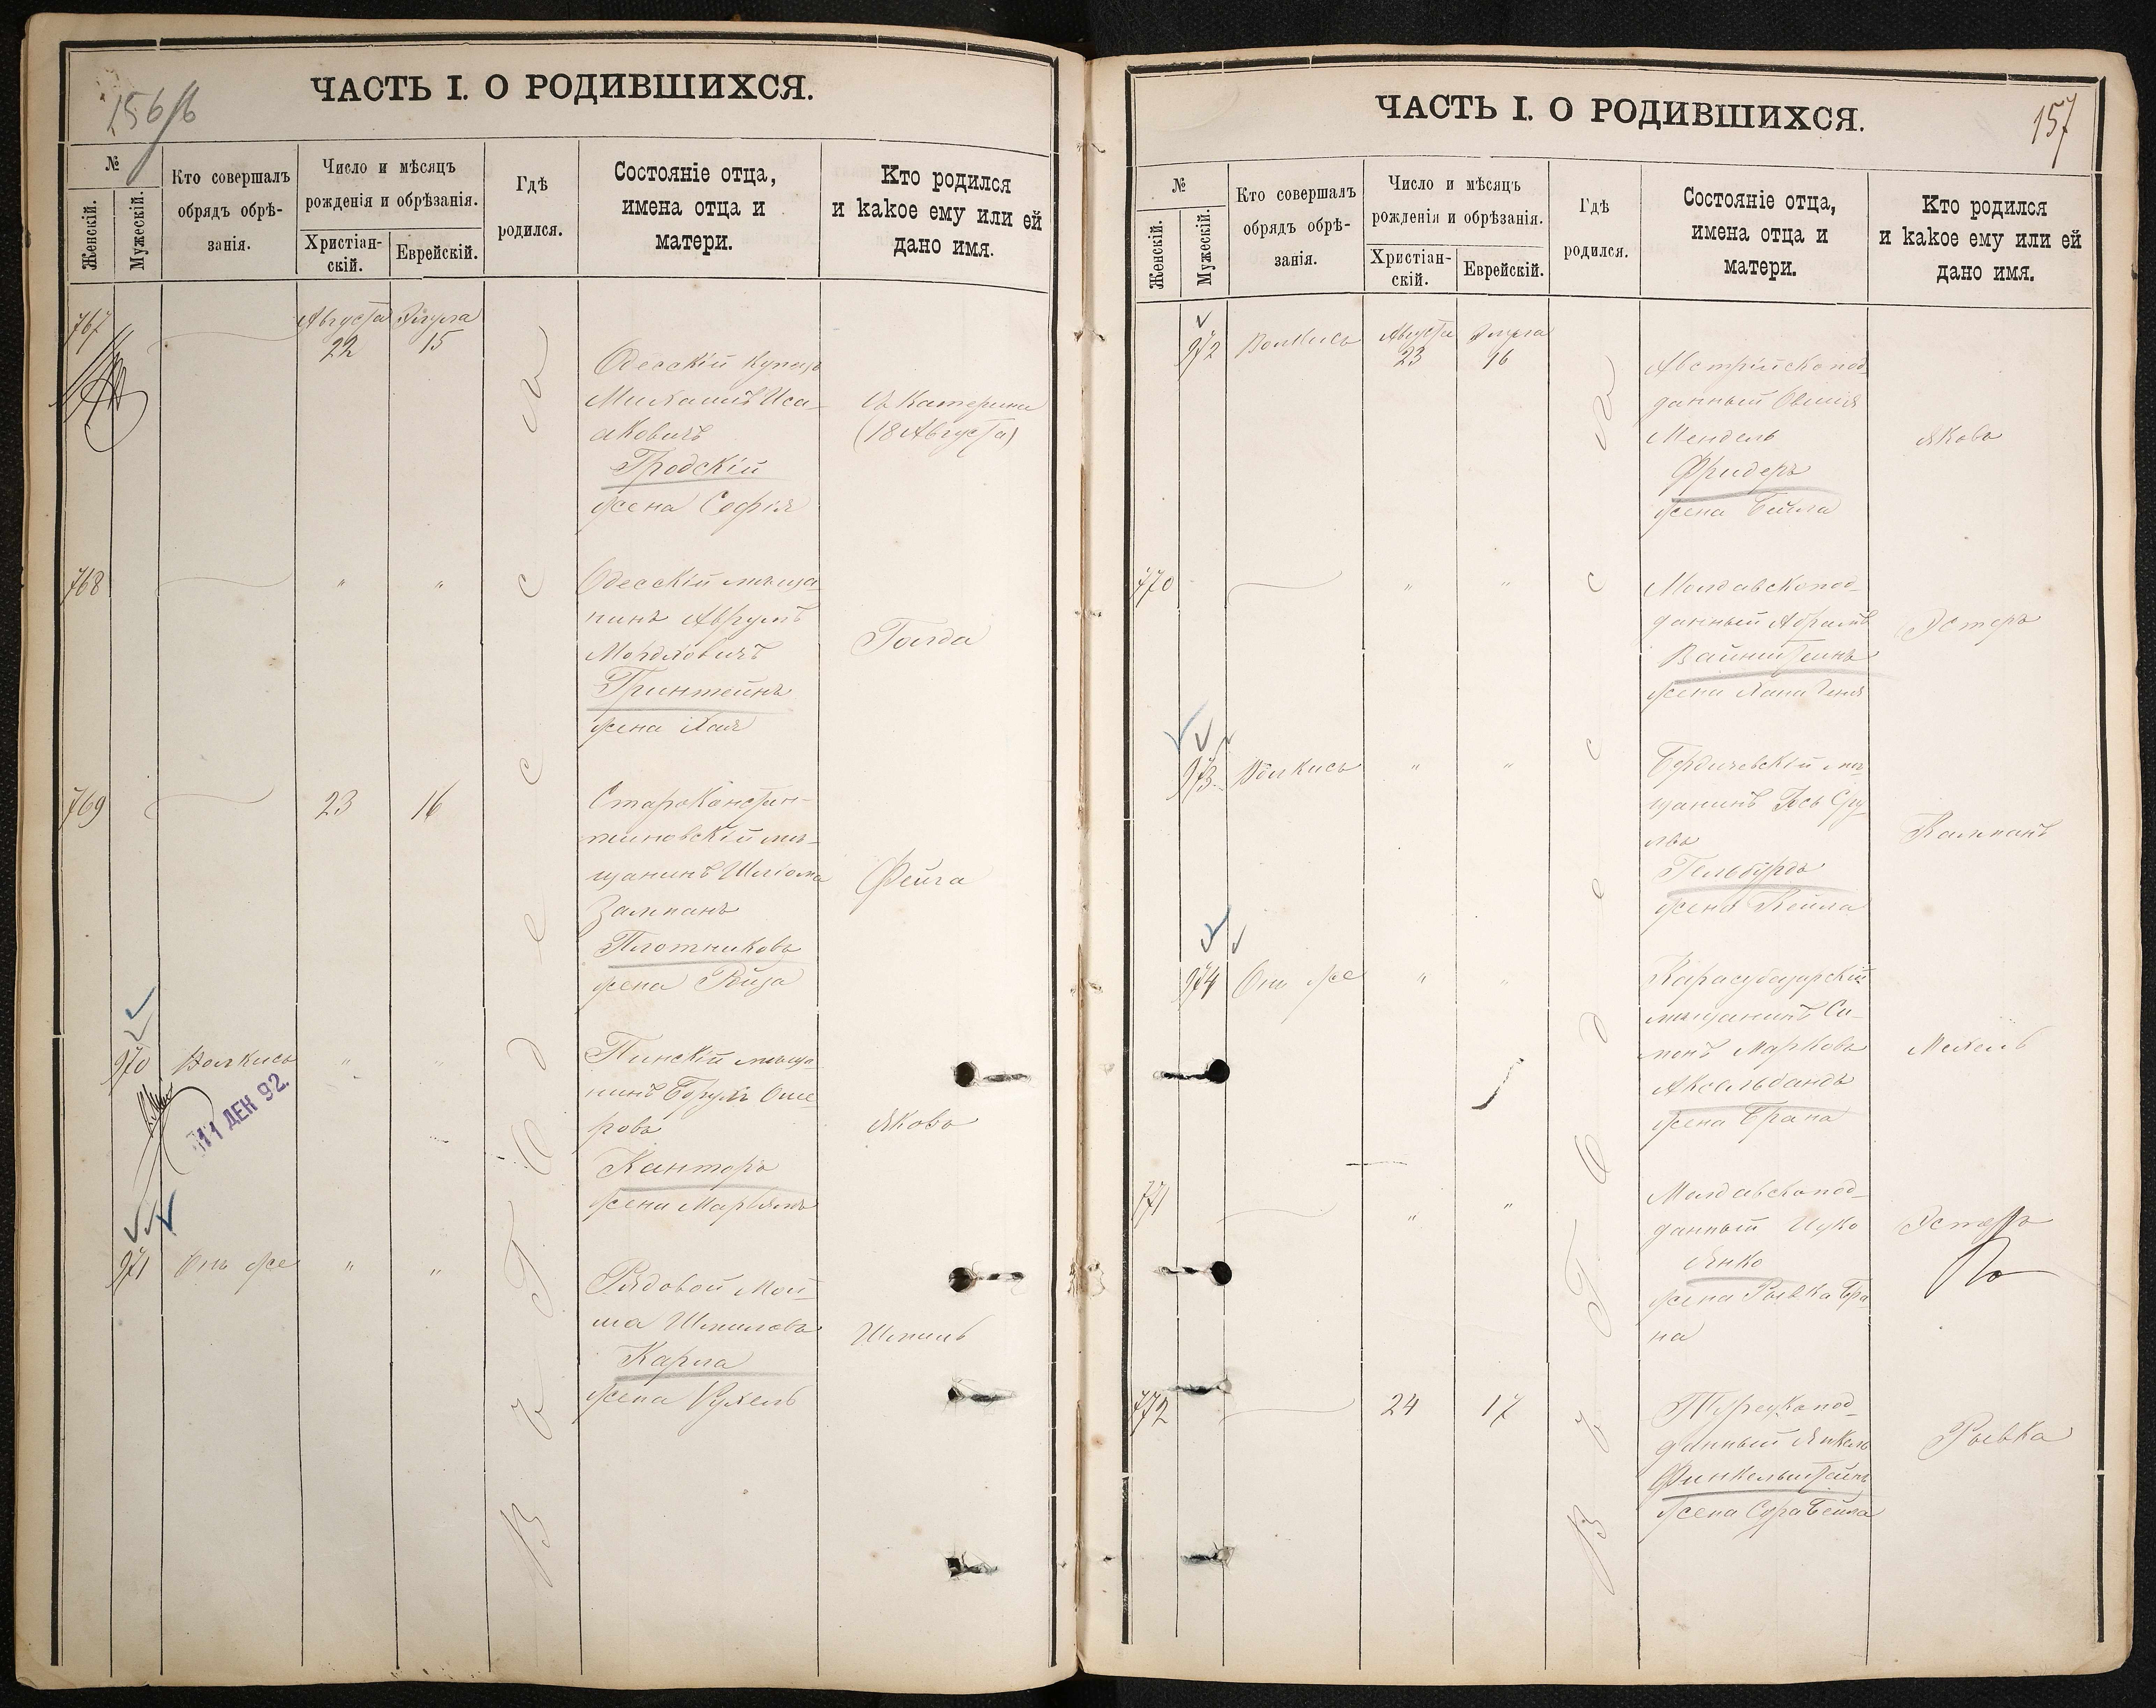 156/б
ЧАСТЬ I. О РОДИВШИХСЯ.
№
Женскій.
Мужескій.
Кто совершалъ
обрядъ обрѣ-
занія.
Число и мѣсяцъ
рожденія и обрѣзанія.
Христіан-
скій.
Еврейскій.
Гдѣ
родился.
Состояніе отца,
имена отца и
матери.
Кто родился
и какое ему или ей
дано имя.
Въ Городѣ Одессѣ
767
Августа Элула
22 15
Одесскій купецъ
Иса-
аковичъ
Гродскій
жена Софія
Екатерина
(18 Августа)
768
" "
Одесскій мѣща-
нинъ Аврумъ
Мордковичъ
Гринтейнъ
жена Хая
Голда
769
23 16
Староконстан-
тиновскій мѣ-
щанинъ Шліома
Залманъ
Плотниковъ
жена Рейза
Фейга
970 Волкись " "
Пинскій мѣща-
нинъ Борухъ Оше-
ровъ
Канторъ
жена Марьямъ
Яковъ
11 ДЕК 92.
971 Онъ же " "
Рядовой Мой-
ша Шмилевъ
Карла
жена Рухель
Шмиль
157
ЧАСТЬ I. О РОДИВШИХСЯ.
№
Женскій.
Мужескій.
Кто совершалъ
обрядъ обрѣ-
занія.
Число и мѣсяцъ
рожденія и обрѣзанія.
Христіан-
скій.
Еврейскій.
Гдѣ
родился.
Состояніе отца,
имена отца и
матери.
Кто родился
и какое ему или ей
дано имя.
Въ Городѣ Одессѣ
972 Волкись Августа Элула
23 16
Австрійскопод-
данный Овшія
Мендель
Фридеръ
жена Бейла
Яковъ
770
" "
Молдавскопод-
данный Абрамъ
Вайнштейнъ
жена Хана Геня
Эстеръ
973 Волкись " "
Бердичевскій мѣ-
щанинъ Іось Сру-
лъ
Гельбурдъ
жена Кейла
Калманъ
974 Онъ же " "
Карасубазарскій
мѣщанинъ Си-
менъ Марковъ
Аксельбандъ
жена Брана
Мехель
771
" "
Молдавскопод-
данный Ицко
Янко
жена Рывка Бра-
на
Эстеръ
772
24 17
Турецкопод-
данный Янкель
Финкельштейнъ
жена Сура Бейла
Рывка